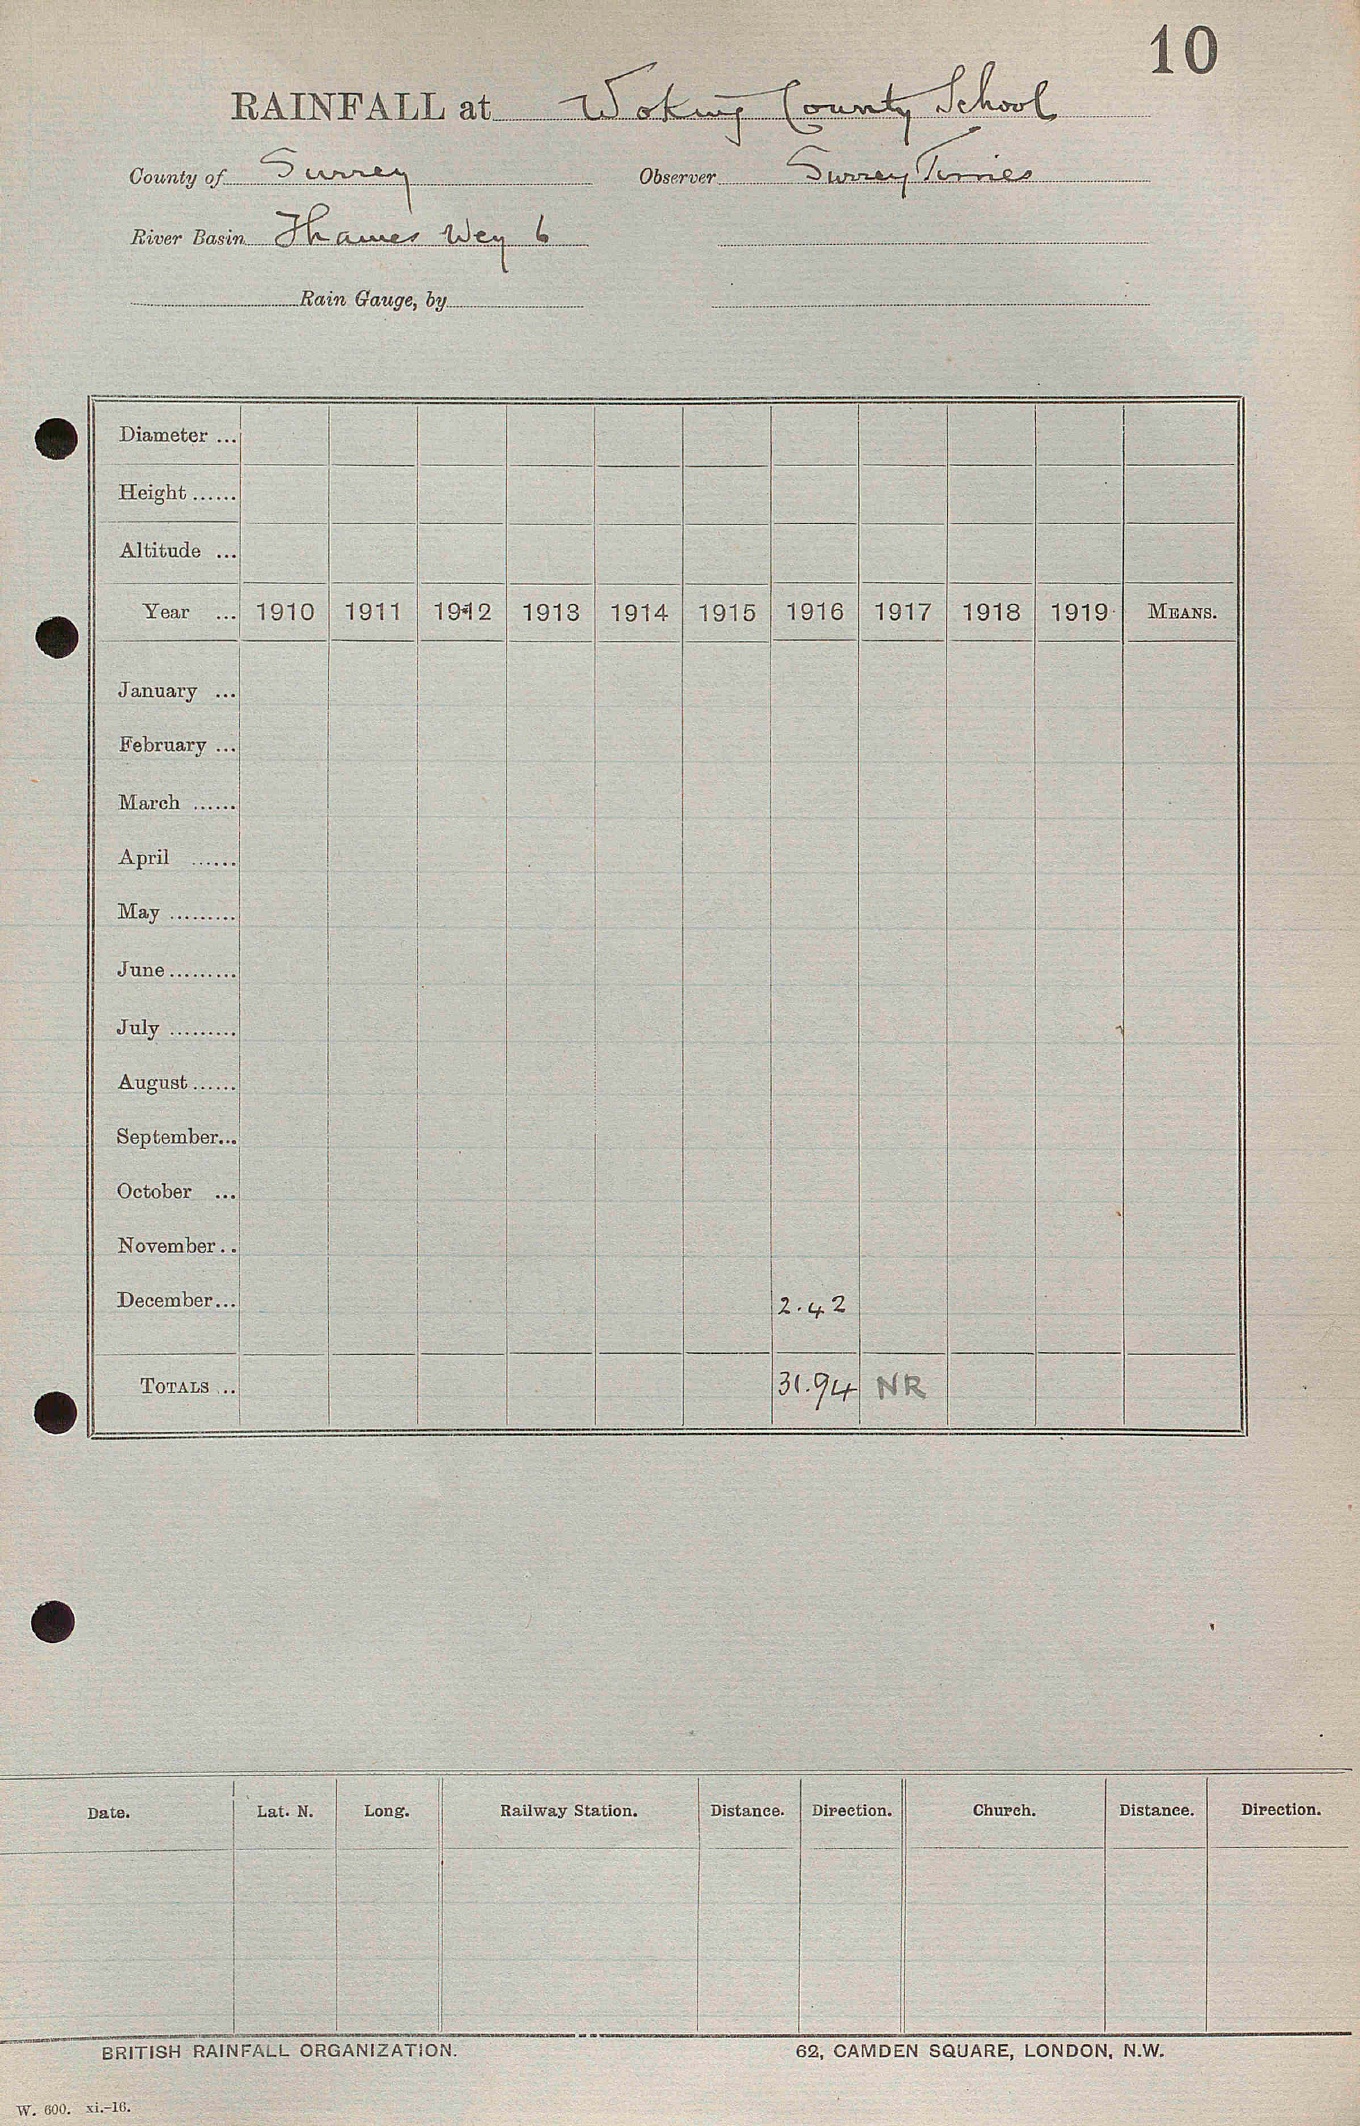 10
RAINFALL at Woking County School
County of Surrey Observer Surrey Times
River Basin Thames Wey 6
Rain Gauge, by
Diameter ...
Height ......
Altitude ...
Year ... 1910 1911 1912 1913 1914 1915 1916 1917 1918 1919 MEANS.
January ...
February ...
March ......
April ......
May .........
June .........
July .........
August ......
September...
October ...
November..
December... 2.42
TOTALS ... 31.94 NR
Date. Lat. N. Long. Railway Station. Distance. Direction. Church. Distance. Direction.
BRITISH RAINFALL ORGANIZATION. 62, CAMDEN SQUARE, LONDON, N.W.
W. 600. xi.-16.